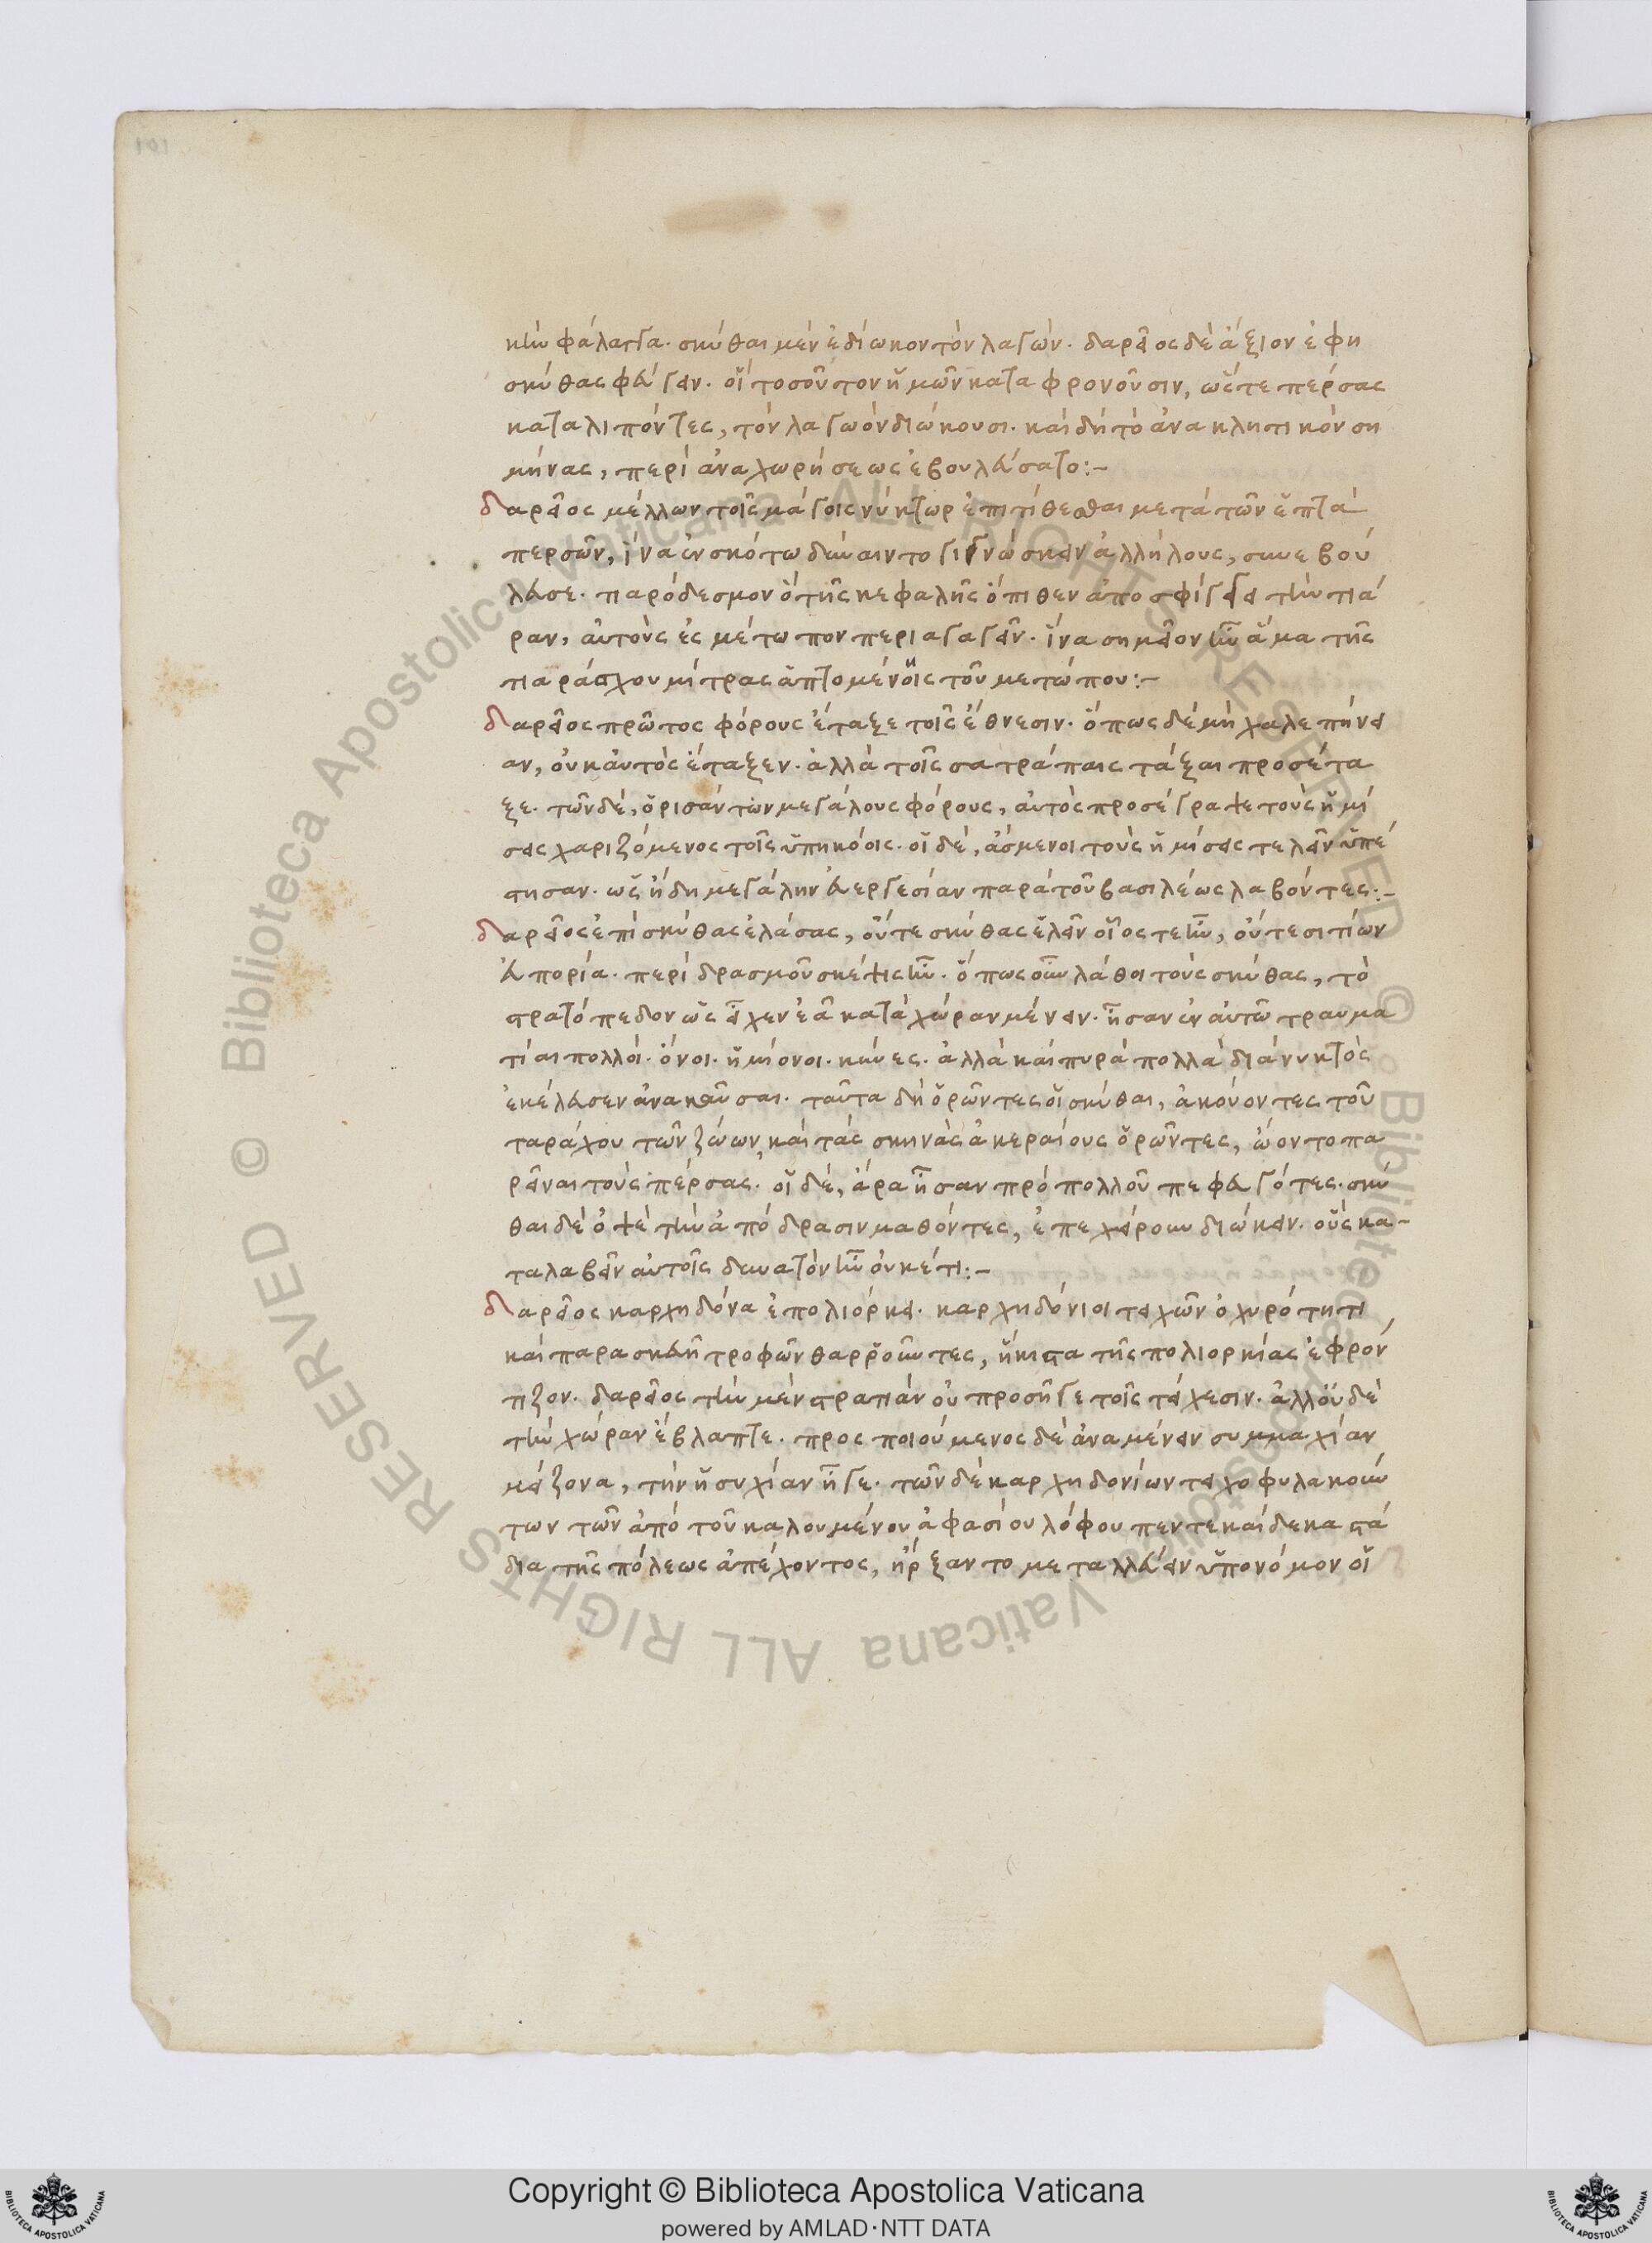 κὴν φάλαγγα. σκύθαι μὲν ἐδίωκον τὸν λαγών. δαρεῖος δὲ ἄξιον ἔφη
σκύθας φεύγειν. οἳ τοσοῦτον ἡμῶν καταφρονοῦσιν, ὥστε πέρσας
καταλιπόντες, τὸν λαγωὸν διώκουσι. καὶ δὴ τὸ ἀνακλητικὸν ση
μήνας, περὶ ἀναχωρήσεως ἐβουλεύσατο:-
δαρεῖος μέλλων τοῖς μάγοις νύκτωρ ἐπιτίθεσθαι μετὰ τῶν ἑπτὰ
περσῶν, ἵνα ἐν σκότω δύναιντο γιγνώσκειν ἀλλήλους, συνεβού
λευσε. παρόδεσμον ὃ τῆς κεφαλῆς ὄπιθεν ἀποσφίγγει τὴν τιά
ραν, αὐτοὺς ἐς μέτωπον περιαγαγεῖν. ἵνα σημεῖον ἦν ἅμα τῆς
τιαράσχου μίτρας ἁπτομένοις τοῦ μετώπου:-
δαρεῖος πρῶτος φόρους ἔταξε τοῖς ἔθνεσιν. ὅπως δὲ μὴ χαλεπήνει
αν, οὐκ αὐτὸς ἔταξεν. ἀλλὰ τοῖς σατράπαις τάξαι προσέτα
ξε. τῶν δὲ, ὁρισάντων μεγάλους φόρους, αὐτὸς προσέγραψε τοὺς ἡμί
σεις χαριζόμενος τοῖς ὑπηκόοις. οἱ δὲ, ἄσμενοι τοὺς ἡμίσεις τελεῖν ὑπέ
στησαν. ὡς ἤδη μεγάλην εὐεργεσίαν παρὰ τοῦ βασιλέως λαβόντες:-
δαρεῖος ἐπὶ σκύθας ἐλάσας, οὔτε σκύθας ἑλεῖν οἷος τε ἦν, οὔτε σιτίων
εὐπορία. περὶ δρασμοῦ σκέψις ἦν. ὅπως οὖν λάθοι τοὺς σκύθας, τὸ
στρατόπεδον ὡς εἶχεν ἐᾶ κατὰ χώραν μένειν. ἦσαν ἐν αὐτῶ τραυμα
τίαι πολλοί. ὄνοι. ἡμίονοι. κύνες. ἀλλὰ καὶ πυρὰ πολλὰ διὰ νυκτὸς
ἐκέλευσεν ἀνακαῦσαι. ταῦτα δὴ ὁρῶντες οἱ σκύθαι, ἀκούοντες τοῦ
ταράχου τῶν ζώων, καὶ τὰς σκηνὰς ἀκεραίους ὁρῶντες, ὤοντο πα
ρεῖναι τοὺς πέρσας. οἱ δὲ, ἄρα ἦσαν πρὸ πολλοῦ πεφευγότες. σκύ
θαι δὲ ὀψὲ τὴν ἀπόδρασιν μαθόντες, ἐπεχείρουν διώκειν. οὓς κα-
ταλαβεῖν αὐτοῖς δυνατὸν ἦν οὐκέτι:-
δαρεῖος καρχηδόνα ἐπολιόρκει. καρχηδόνιοι τειχῶν ὀχυρότητι
καὶ παρασκευῆ τροφῶν θαρροῦντες, ἥκιστα τῆς πολιορκίας ἐφρόν
τιζον. δαρεῖος τὴν μὲν στρατιὰν οὐ προσῆγε τοῖς τείχεσιν. ἀλλ' οὐδὲ
τὴν χώραν ἔβλαπτε. προσποιούμενος δὲ ἀναμένειν συμμαχίαν
μείζονα, τὴν ἡσυχίαν ἦγε. τῶν δὲ καρχηδονίων τειχοφυλακούν
των τῶν ἀπὸ τοῦ καλουμένου ἀφασίου λόφου πεντεκαίδεκα στά
δια τῆς πόλεως ἀπέχοντος, ἤρξαντο μεταλλεύειν ὑπονόμον οἱ
© Biblioteca Apostolica Vaticana ALL RIGHTS RESERVED © Biblioteca Apostolica Vaticana ALL RIGHTS RESERVED
Copyright © Biblioteca Apostolica Vaticana
powered by AMLAD·NTT DATA